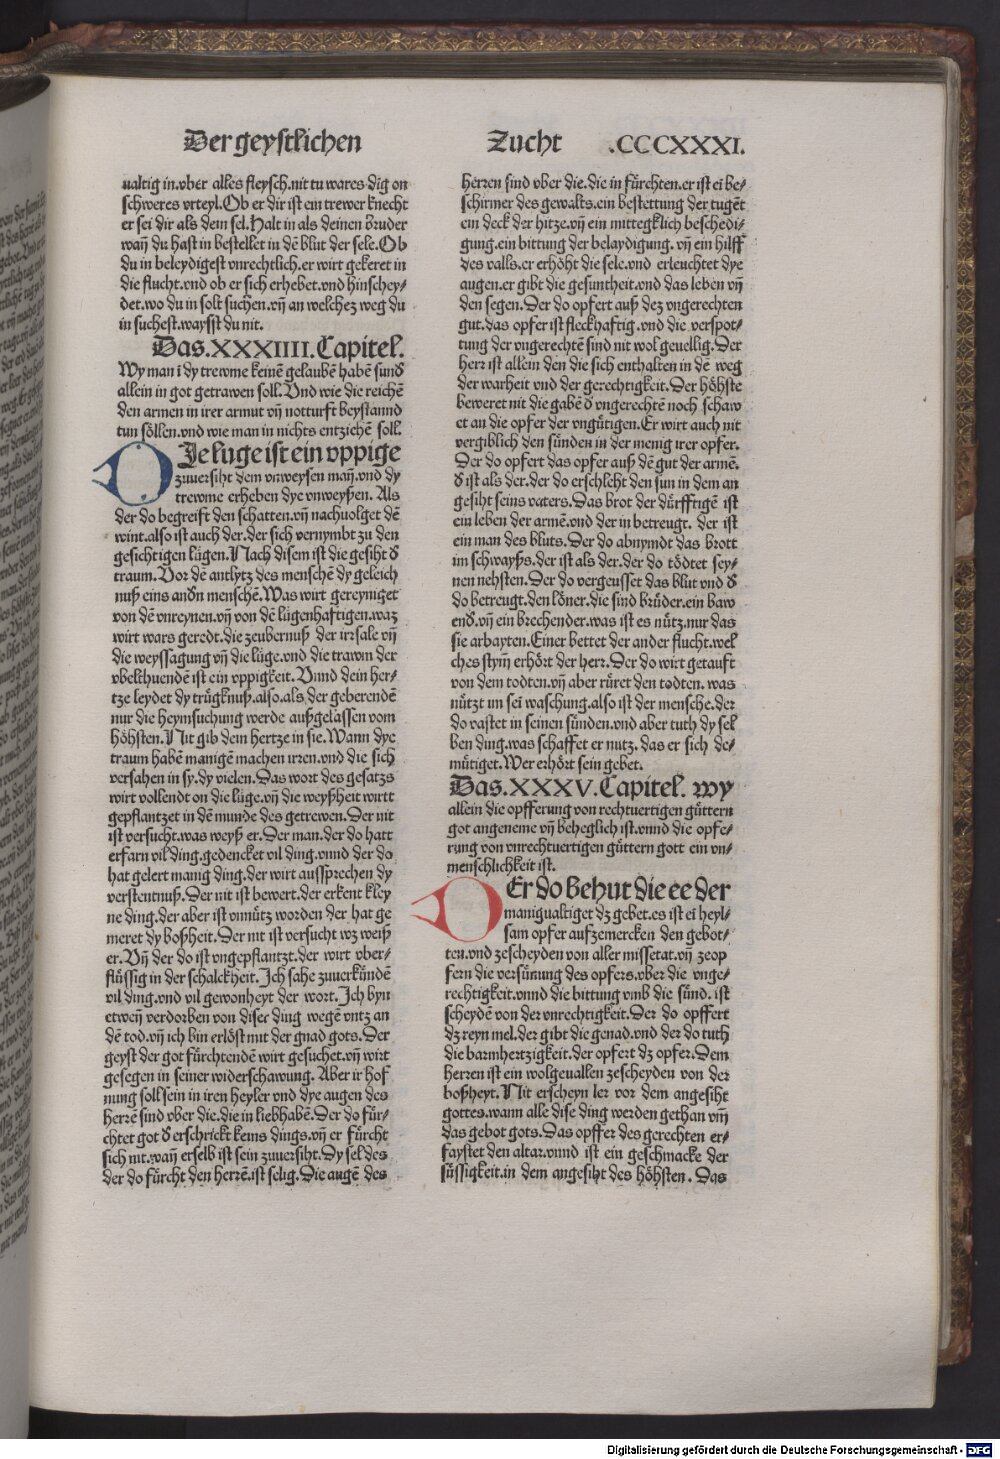 Der geystlichen Zucht .CCCXXXI.
ualtig in.vber alles fleysch.nit tu wares dīg on
schweres vrteyl.Ob er dir ist ein trewer knecht
er sei dir als dein sel.Halt in als deinen bruder
wañ du hast in bestellet in dē blut der sele.Ob
du in beleydigest vnrechtlich.er wirt gekeret in
die flucht.vnd ob er sich erhebet.vnd hinschey⸗
det.wo du in solt suchen.vñ an welchez weg du
in suchest.waysst du nit.
Das.XXXIIII.Capitel.
Wy man ī dy trewme keinē gelaubē habē sund̄
allein in got getrawen soll.Vnd wie die reichē
den armen in irer armut vñ notturft beystannd
tun söllen.vnd wie man in nichts entziehē soll.
DIe luge ist ein vppige
zuuersiht dem vnweysen mañ.vnd dy
trewme erheben dye vnweyßen. Als
der do begreift den schatten.vñ nachuolget dē
wint.also ist auch der.der sich vernymbt zu den
gesichtigen lügen.Nach disem ist die gesiht d̄
traum.Vor dē antlytz des menschē dy geleich
nuß eins andn̄ menschē.Was wirt gereyniget
von dē vnreynen.vñ von dē lügenhaftigen.waz
wirt wars geredt.die zeubernuß der irrsale vñ
die weyssagung vñ die lüge.vnd die trawm der
vbelthuendē ist ein vppigkeit. Vnnd dein her⸗
tze leydet dy trügknuß.also.als der geberendē
nur die heymsuchung werde außgelassen vom
höhsten.Nit gib dein hertze in sie.Wann dye
traum habē manigē machen irren.vnd die sich
versahen in sy.dy vielen.Das wort des gesatzs
wirt vollendt on die lüge.vñ die weyßheit wirtt
gepflantzet in dē munde des getrewen.Der nit
ist versucht.was weyß er.Der man.der do hatt
erfarn vil ding.gedencket vil ding.vnnd der do
hat gelert manig ding.der wirt aussprechen dy
verstentnuß.Der nit ist bewert.der erkent kley
ne ding.der aber ist vnnütz worden der hat ge
meret dy boßheit.Der nit ist versucht wz weiß
er.Vñ der do ist vngepflantzt.der wirt vber⸗
flüssig in der schalckheit.Ich sahe zuuerkündē
vil ding.vnd vil gewonheyt der wort.Ich byn
etweñ verdorben von diser ding wegē vntz an
dē tod.vñ ich bin erlöst mit der gnad gots.Der
geyst der got fürchtendē wirt gesuchet.vñ wirt
gesegen in seiner widerschawung. Aber ir hof
nung soll sein in iren heyler vnd dye augen des
herrē sind vber die.die in liebhabē.Der do für⸗
chtet got d̄ erschrickt keins dings.vñ er fürcht
sich nit.wañ er selb ist sein zuuersiht.Dy sel des
der do fürcht den herrē.ist selig.Die augē des
herren sind vber die.die in fürchten.er ist eī be⸗
schirmer des gewalts.ein bestettung der tugēt
ein deck der hitze.vñ ein mittegklich beschedi⸗
gung.ein bittung der belaydigung. vñ ein hilff
des valls.er erhöht die sele.vnd erleuchtet dye
augen.er gibt die gesuntheit.vnd das leben vñ
den segen.Der do opfert auß dez vngerechten
gut.das opfer ist fleckhaftig.vnd die verspot⸗
tung der vngerechtē sind nit wol geuellig.Der
herr ist allein den die sich enthalten in dē weg
der warheit vnd der gerechtigkeit.Der höhste
beweret nit die gabē d̄ vngerechtē noch schaw
et an die opfer der vngütigen.Er wirt auch nit
vergiblich den sünden in der menig irer opfer.
Der do opfert das opfer auß dē gut der armē.
d̄ ist als der.der do erschleht den sun in dem an
gesiht seins vaters.Das brot der dürfftigē ist
ein leben der armē.vnd der in betreugt. der ist
ein man des bluts.Der do abnymdt das brott
im schwayßs.der ist als der.der do tödtet sey⸗
nen nehsten.Der do vergeusset das blut vnd d̄
do betreugt.den löner.die sind brüder.ein baw
end̄.vñ ein brechender.was ist es nütz.nur das
sie arbayten.Einer bettet der ander flucht.wel
ches stym̄ erhört der herr.Der do wirt getauft
von dem todten.vñ aber rüret den todten. was
nützt im seī waschung.also ist der mensche.der
do vastet in seinen sünden.vnd aber tuth dy sel
ben ding.was schaffet er nutz.das er sich de⸗
mütiget.Wer erhört sein gebet.
Das.XXXV.Capitel. wy
allein die opfferung von rechtuertigen güttern
got angeneme vñ beheglich ist.vnnd die opfe⸗
rung von vnrechtuertigen güttern gott ein vn⸗
menschlichkeit ist.
DEr do behut die ee der
manigualtiget dz gebet.es ist eī heyl⸗
sam opfer aufzemercken den gebot⸗
ten.vnd zescheyden von aller missetat.vñ zeop
fern die versünung des opfers.vber die vnge⸗
rechtigkeit.vnnd die bittung vmb die sünd. ist
scheydē von der vnrechtigkeit.Der do opffert
dz reyn mel.der gibt die genad.vnd der do tuth
die barmhertzigkeit.der opfert dz opfer.Dem
herren ist ein wolgeuallen zescheyden von der
boßheyt. Nit erscheyn ler vor dem angesiht
gottes.wann alle dise ding werden gethan vm̄
das gebot gots.Das opffer des gerechten er⸗
faystet den altar.vnnd ist ein geschmacke der
süssigkeit.in dem angesiht des höhsten. Das
Digitalisierung gefördert durch die Deutsche Forschungsgemeinschaft - DFG